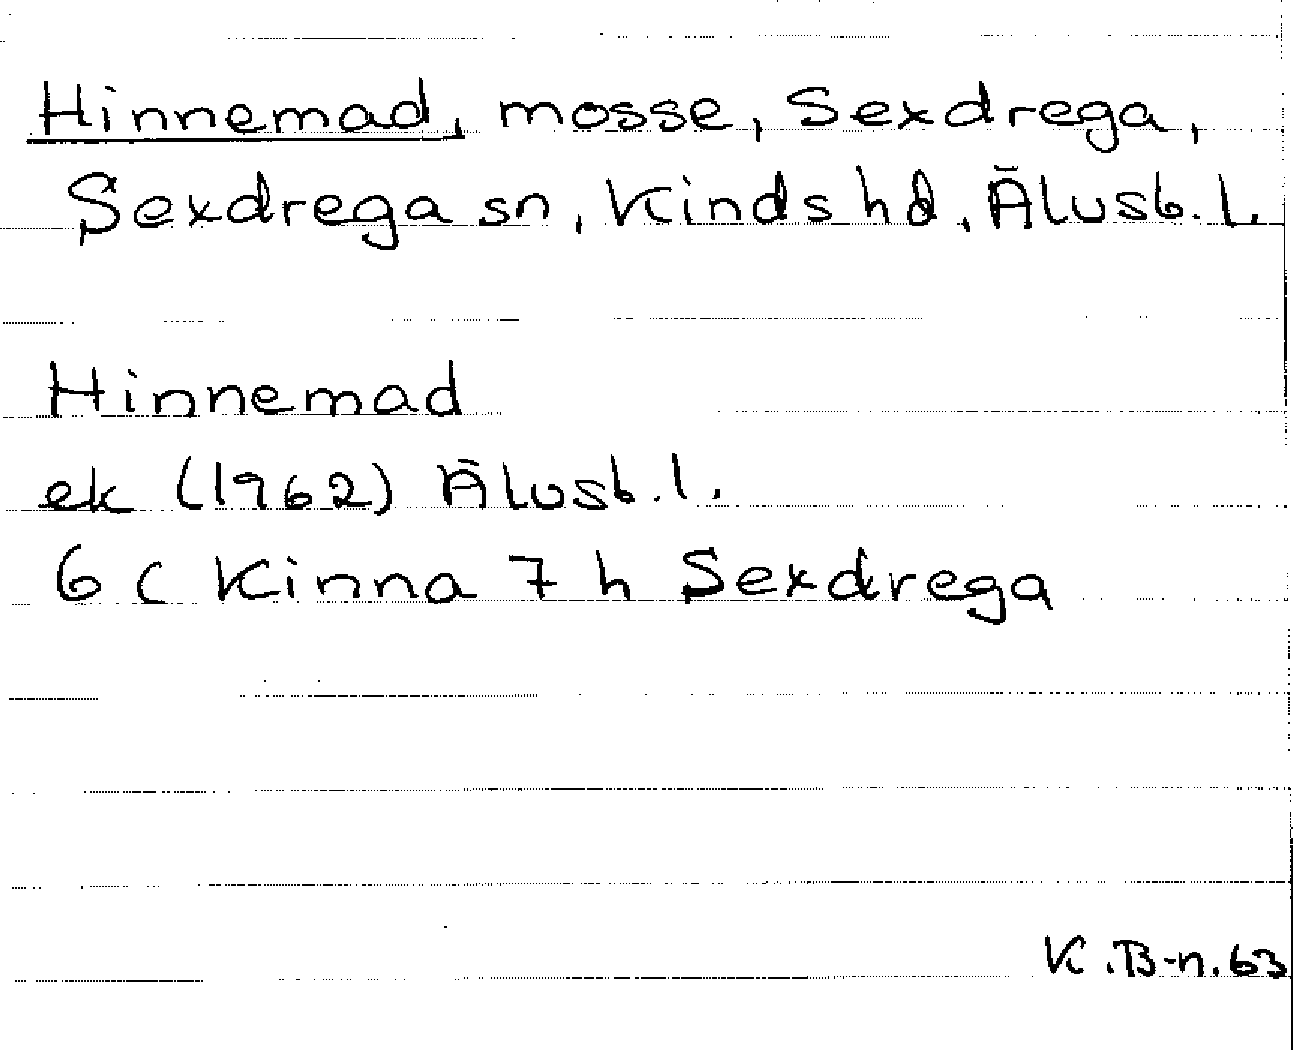 Hinnemad, mosse, Sexdrega,
Sexdrega sn, Kinds hd, Älvsb. l.
Hinnemad
ek (1962) Älvsb. l.
6 C Kinna 7 h Sexdrega
K.B-n. 63